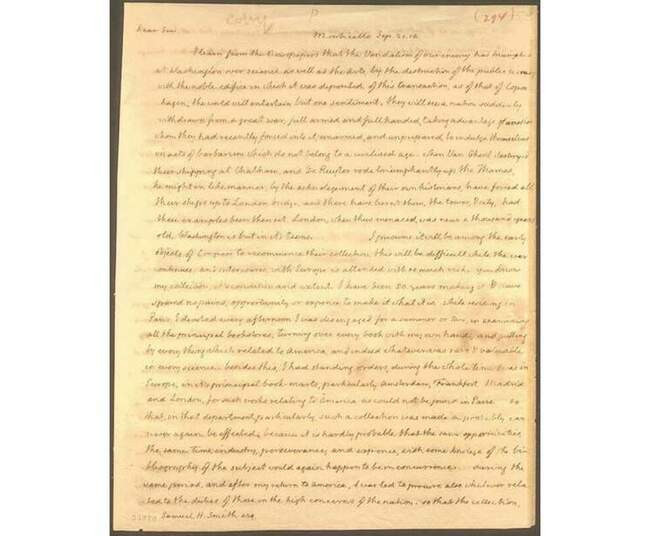 Copy P (294)
Dear Sir, Monticello Sep. 21. 14.
I learn from the Newspapers that the Vandalism of our enemy has triumphed
at Washington over science as well as the Arts, by the destruction of the public library
with the noble edifice in which it was deposited. of this transaction, as of that of Copen
hagen, the world will entertain but one sentiment. they will see a nation suddenly
withdrawn from a great war, full armed and full handed, taking advantage of another
whom they had recently forced into it, unarmed, and unprepared, to indulge themselves
in acts of barbarism which do not belong to a civilised age. when Van Ghent destroyed
their shipping at Chatham, and De Ruyter rode triumphantly up the Thames,
he might in like manner, by the acknolegement of their own historians, have forced all
their ships up to London bridge, and there have burnt them, the tower, & city, had
these examples been then set. London, when thus menaced, was near a thousand years
old, Washington is but in it's teens. I presume it will be among the early
objects of Congress to recommence their collection. this will be difficult while the war
continues, and intercourse with Europe is attended with so much risk. you know
my collection, it's condition and extent. I have been 50. years making it, & have
spared no pains, opportunity or expence to make it what it is. while residing in
Paris I devoted every afternoon I was disengaged, for a summer or two, in examining
all the principal bookstores, turning over every book with my own hands, and putting
by every thing which related to America, and indeed whatever was rare & valuable
in every science. besides this, I had standing orders, during the whole time I was in
Europe, in it's principal book-marts, particularly Amsterdam, Frankfort, Madrid
and London, for such works relating to America as could not be found in Paris. so
that, in that department particularly, such a collection was made as probably can
never again be effected; because it is hardly probable that the same opportunities,
the same time, industry, perseverance, and expence, with some knolege of the bib
bliography of the subject would again happen to be in concurrence. during the
same period, and after my return to America, I was led to procure also whatever rela
ted to the duties of those in the high concerns of the nation. so that the collection,
Samuel H. Smith esq.